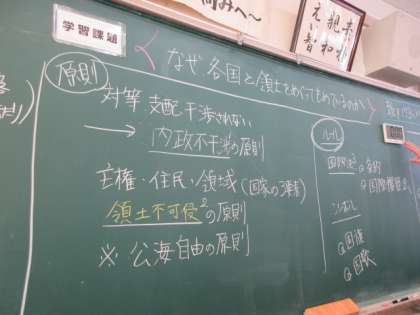 学習課題
なぜ各国と領土をめぐってもめているのか
原則
対等 支配干渉されない
→ 内政不干渉の原則
主権・住民・領域(国家の3要素)
領土不可侵の原則
※公海自由の原則
ルール
国際法 条約
国際慣習法
シンボル
国旗
国歌